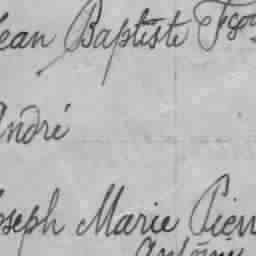 Jean Baptiste Fçois
André
Joseph Marie Pierre
Antoine